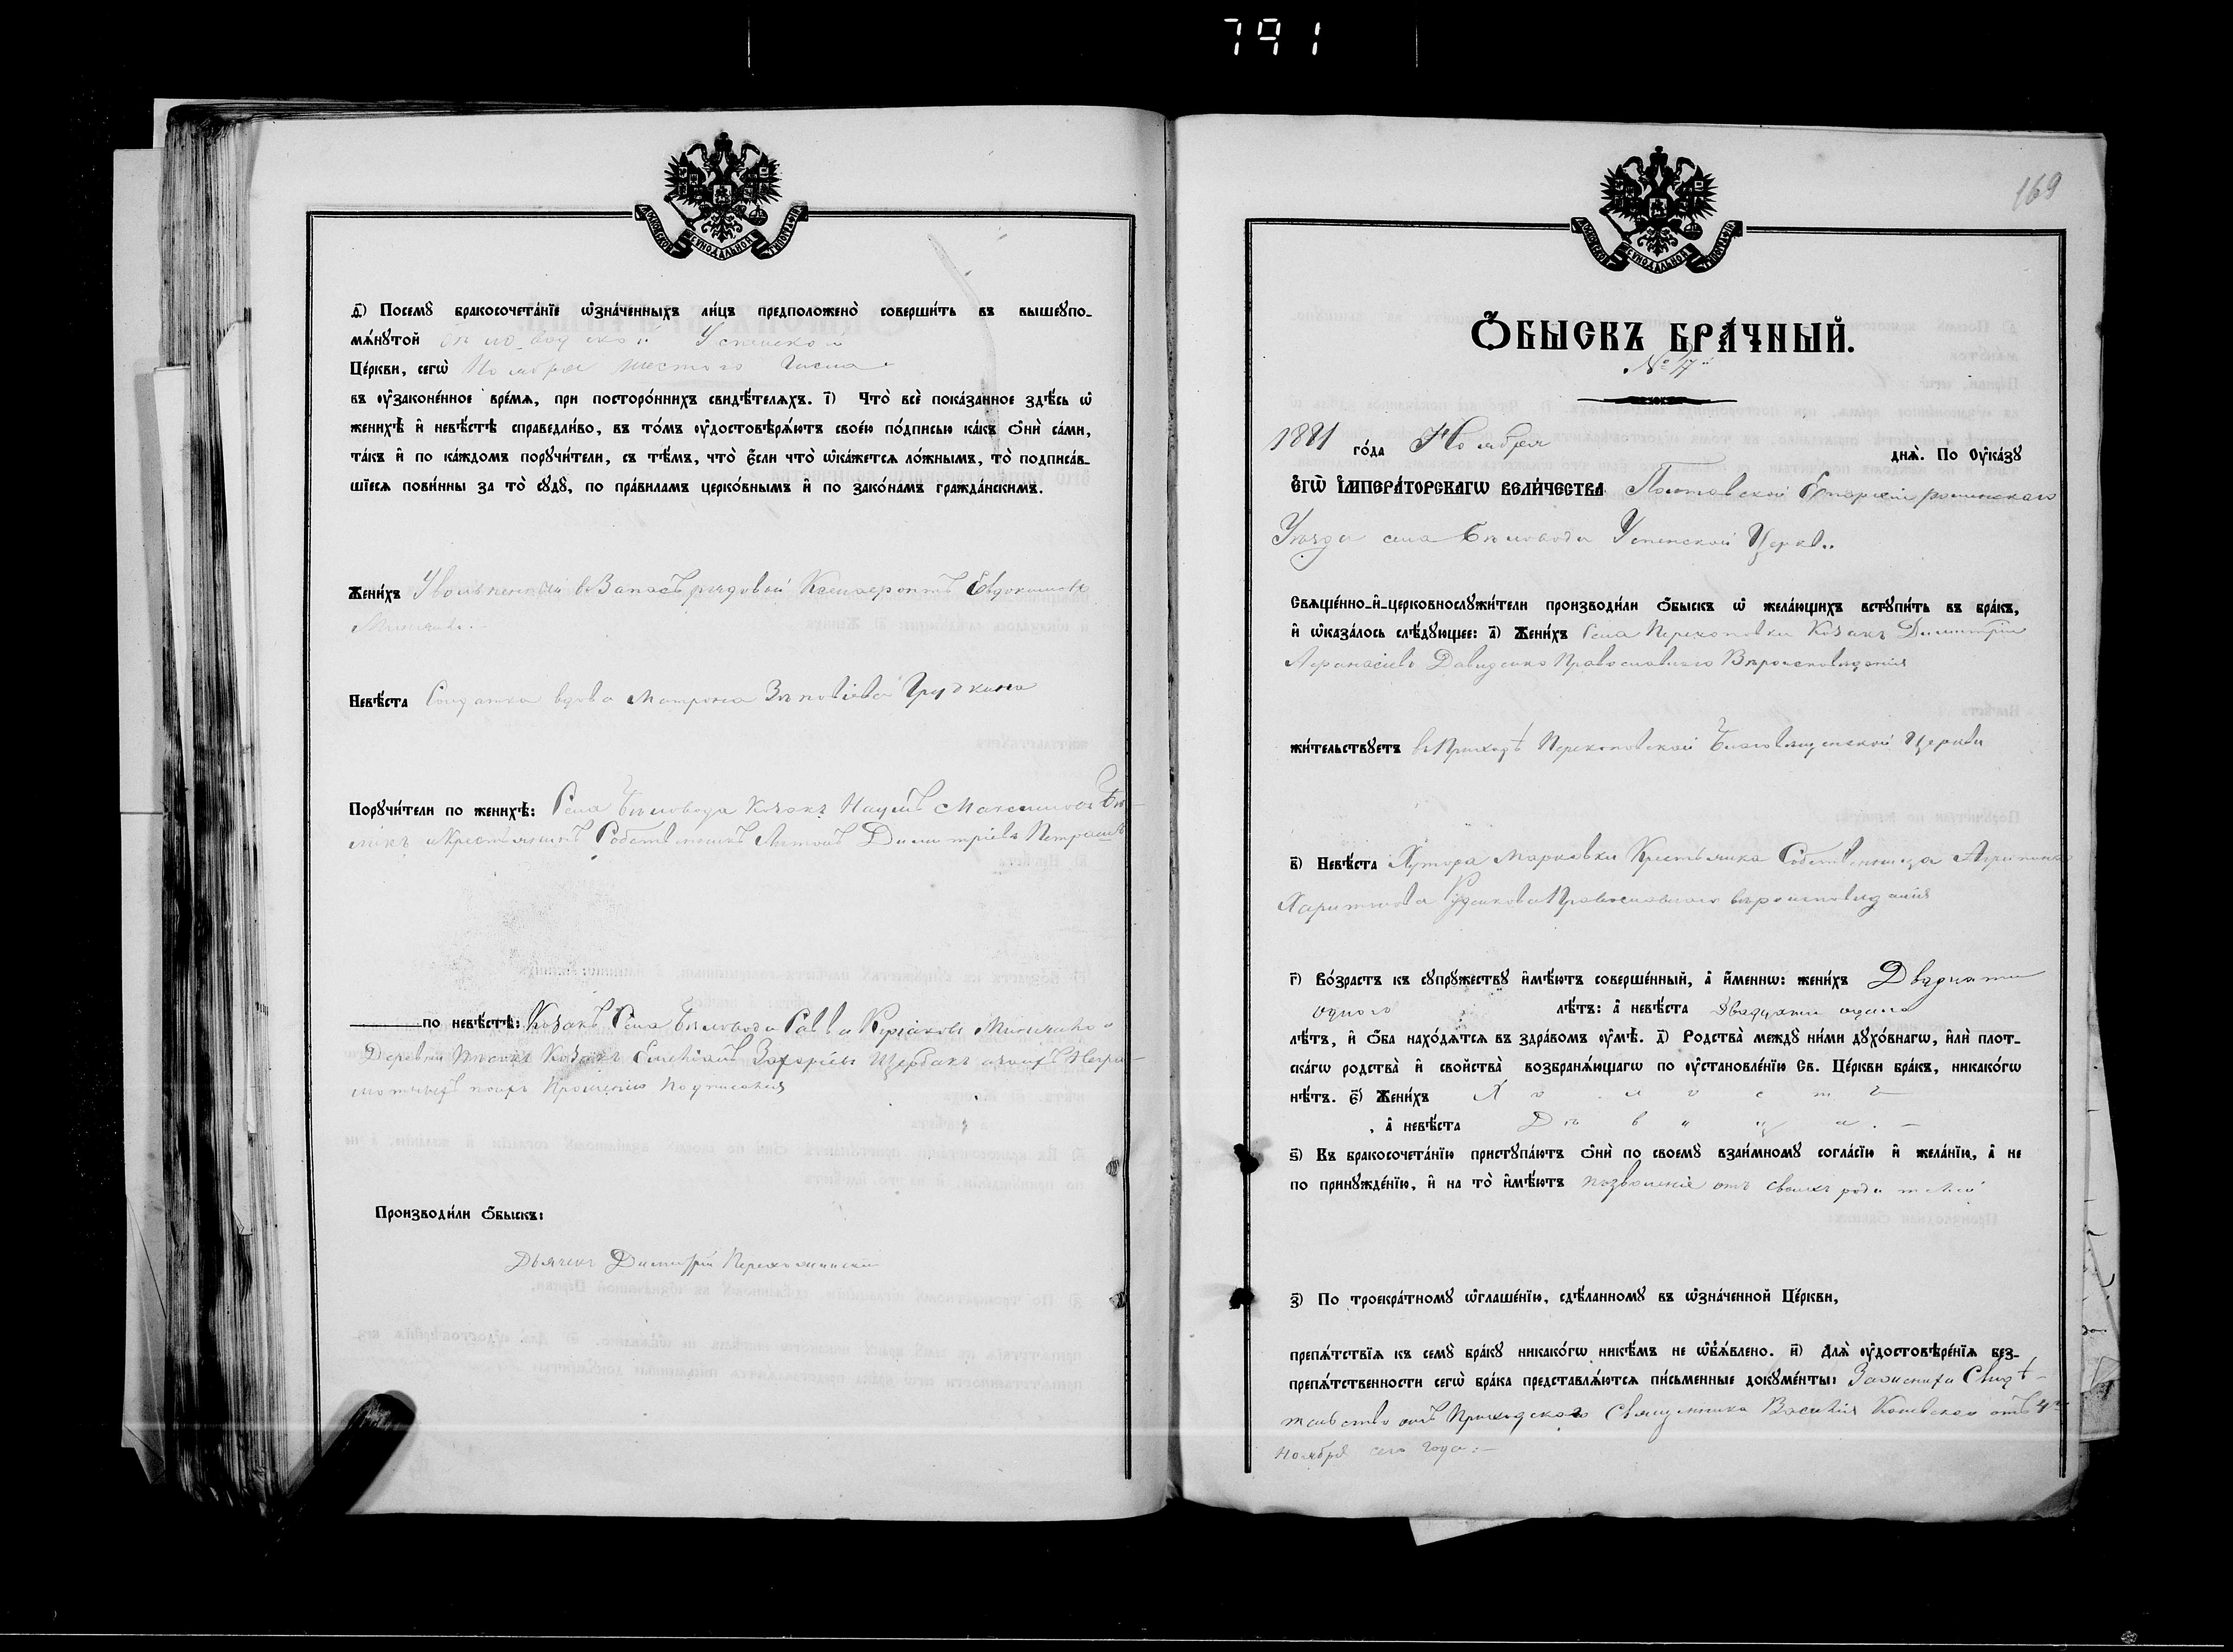 791
МОСКОВСКОЙ СѴНОДАЛЬНОЙ ТИПОГРАФІИ
ѳ҃) Посемꙋ бракосочета́нїе ѡ҆зна́ченныхъ ли́цъ предположено̀ соверши́ть въ вышеꙋпо-
мѧ́нꙋтой Бѣловодской Успенской
Це́ркви, сегѡ̀ Ноября шестого числа
въ ᲂу҆зако́ненное вре́мѧ, при посторо́ннихъ свидѣ́телѧхъ. і҃) Что̀ всѐ пока́занное здѣ́сь ѡ҆
женихѣ̀ и҆ невѣ́стѣ справедли́во, въ то́мъ ᲂу҆достовѣрѧ́ютъ свое́ю по́дписью ка́къ ѻ҆нѝ са́ми,
та́къ и҆ по ка́ждомъ порꙋчи́тели, съ тѣ́мъ, что̀ є҆́сли что̀ ѡ҆ка́жетсѧ ло́жнымъ, то̀ подписа́в-
шїесѧ пови́нны за то̀ сꙋдꙋ̀, по пра́виламъ церко́внымъ и҆ по зако́намъ гражда́нскимъ.
Жени́хъ Увольненный въ Запасъ рядовой Ксенофонтъ Евдокимовъ
Невѣ́ста Солдатка вдова Матрона Зѣновіева
Порꙋчи́тели по женихѣ̀: Села Бѣловода козакъ Наумъ Максимовъ Бѣ-
ликъ и крестьянинъ Собственникъ Антонъ Димитріевъ Петрашъ
по невѣ́стѣ: Козакъ Села Бѣловода Савва
Деревни козакъ Емеліанъ Захаріевъ Щербакъ а за ихъ Негра-
мотныхъ по ихъ прошенію подписался
Производи́ли ѻ҆́быскъ:
Дьячекъ Димитрій
169
МОСКОВСКОЙ СѴНОДАЛЬНОЙ ТИПОГРАФІИ
Ѻ҆́БЫСКЪ БРА́ЧНЫЙ.
№ 17й
1881 го́да Ноября днѧ̀. По Оу҆ка́зꙋ
Є҆ГѠ̀ И҆МПЕРА́ТОРСКАГѠ ВЕЛИ́ЧЕСТВА Полтавской Епархіи роменскаго
Уѣзда села Бѣловода Успенской Церкви
Свѧще́нно-и҆-церковнослꙋжи́тели производи́ли ѻ҆́быскъ ѡ҆ жела́ющихъ встꙋпи́ть въ бра́къ,
и҆ ѡ҆каза́лось слѣ́дꙋющее: а҃) Жени́хъ Села Перекоповки Козакъ Димитрій
Афанасіевъ Давиденко Православнаго Вѣроисповѣданія
жи́тельствꙋетъ въ Приходѣ Перекоповской Благовѣщенской Церкви
в҃) Невѣ́ста Хутора Марковки Крестьянка Собственница Агрипина
Харитонова Православнаго вѣроисповѣданія
г҃) Во́зрастъ къ сꙋпрꙋ́жествꙋ и҆мѣ́ютъ соверше́нный, а҆ и҆́меннѡ: жени́хъ Двадцати
одного лѣ́тъ: а҆ невѣ́ста двадцати одного
лѣ́тъ, и҆ ѻ҆́ба нахо́дѧтсѧ въ здра́вомъ ᲂу҆мѣ̀. д҃) Родства̀ междꙋ̀ ни́ми дꙋхо́внагѡ, и҆лѝ пло́т-
скагѡ родства̀ и҆ свойства̀ возбранѧ́ющагѡ по ᲂу҆становле́нїю Св. Це́ркви бра́къ, никако́гѡ
нѣ́тъ. є҃) Жени́хъ Холостъ
, а҆ невѣ́ста Дѣвица. —
ѕ҃) Къ бракосочета́нїю пристꙋпа́ютъ ѻ҆нѝ по своемꙋ̀ взаи́мномꙋ согла́сїю и҆ жела́нїю, а҆ не
по принꙋжде́нїю, и҆ на то̀ и҆мѣ́ютъ позволеніе отъ своихъ родителей
з҃) По троекра́тномꙋ ѡ҆глаше́нїю, сдѣ́ланномꙋ въ ѡ҆зна́ченной Це́ркви,
препѧ́тствїѧ къ семꙋ̀ бра́кꙋ никако́гѡ никѣ́мъ не ѡ҆б̾ѧ́влено. и҃) Длѧ̀ ᲂу҆достовѣре́нїѧ без-
препѧ́тственности сегѡ̀ бра́ка представлѧ́ютсѧ пи́сьменные докꙋме́нты: Свидѣ-
тельство отъ Приходского Священника Василія отъ 4го
ноября сего года: —